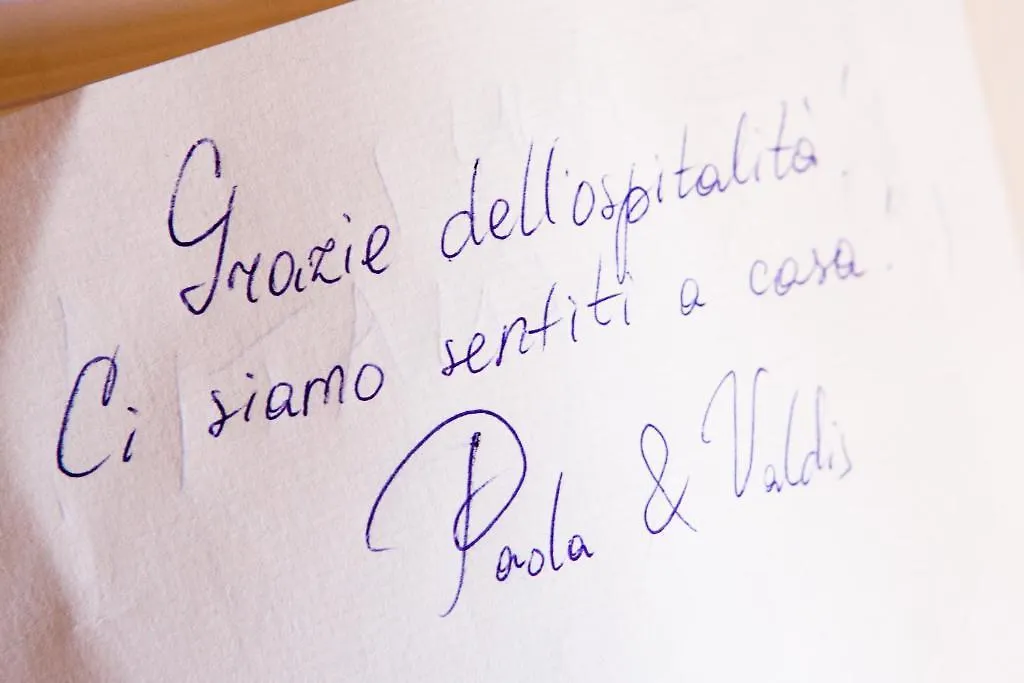 Grazie dell'ospitalità!
Ci siamo sentiti a casa!
Paola & Valdis